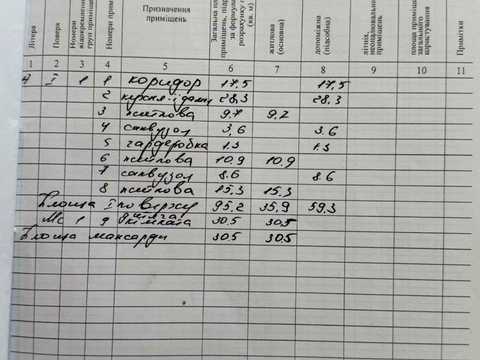 Літера Поверх Номери відокремлених груп приміщень Номери приміщень Призначення приміщень Загальна площа приміщень, під за формулами розрахунку (кв. м) житлова (основна) допоміжна (підсобна) літніх, неопалювальних приміщень площа приміщень загального користування Примітки
1 2 3 4 5 6 7 8 9 10 11
А І 1 1 коридор 17,5 17,5
2 кухня-їдальня 28.3 28.3
3 житлова 9.7 9.7
4 санвузол 3,6 3.6
5 гардеробка 1.3 1.3
6 житлова 10.9 10.9
7 санвузол 8.6 8.6
8 житлова 15.3 15.3
Площа І поверху 95,2 35,9 59,3
М 1 9 житлова кімната 30.5 30.5
Площа мансарди 30.5 30.5